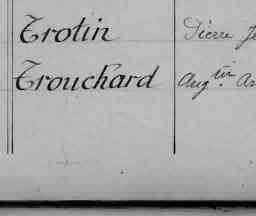 Trotin Pierre
Trouchard Aug.tin